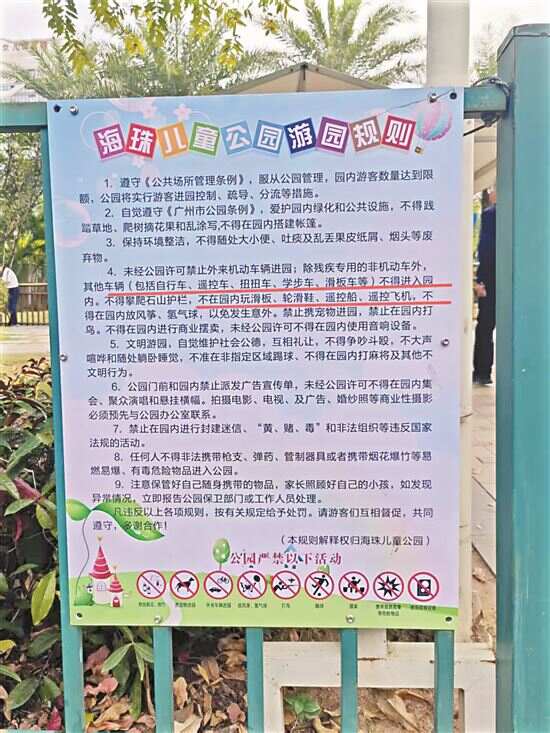 海珠儿童公园游园规则
1. 遵守《公共场所管理条例》，服从公园管理，园内游客数量达到限
额，公园将实行游客进园控制、疏导、分流等措施。
2. 自觉遵守《广州市公园条例》，爱护园内绿化和公共设施，不得践
踏草地、爬树摘花果和乱涂写，不得在园内搭建帐篷。
3. 保持环境整洁，不得随处大小便、吐痰及乱丢果皮纸屑、烟头等废
弃物。
4. 未经公园许可禁止外来机动车辆进园；除残疾专用的非机动车外，
其他车辆（包括自行车、遥控车、扭扭车、学步车、滑板车等）不得进入园
内。不得攀爬石山护栏，不在园内玩滑板、轮滑鞋、遥控船、遥控飞机，不
得在园内放风筝、氢气球，以免发生意外。禁止携宠物进园，禁止在园内打
鸟。不得在园内进行商业摆卖，未经公园许可不得在园内使用音响设备。
5. 文明游园，自觉维护社会公德，互相礼让，不得争吵斗殴，不大声
喧哗和随处躺卧睡觉，不准在非指定区域踢球、不得在园内打麻将及其他不
文明行为。
6. 公园门前和园内禁止派发广告宣传单，未经公园许可不得在园内集
会、聚众演唱和悬挂横幅。拍摄电影、电视、及广告、婚纱照等商业性摄影
必须预先与公园办公室联系。
7. 禁止在园内进行封建迷信、“黄、赌、毒”和非法组织等违反国家
法规的活动。
8. 任何人不得非法携带枪支、弹药、管制器具或者携带烟花爆竹等易
燃易爆、有毒危险物品进入公园。
9. 注意保管好自己随身携带的物品，家长照顾好自己的小孩，如发现
异常情况，立即报告公园保卫部门或工作人员处理。
凡违反以上各项规则，按有关规定给予处罚。请游客们互相督促，共同
遵守，多谢合作！
（本规则解释权归海珠儿童公园）
公园严禁以下活动